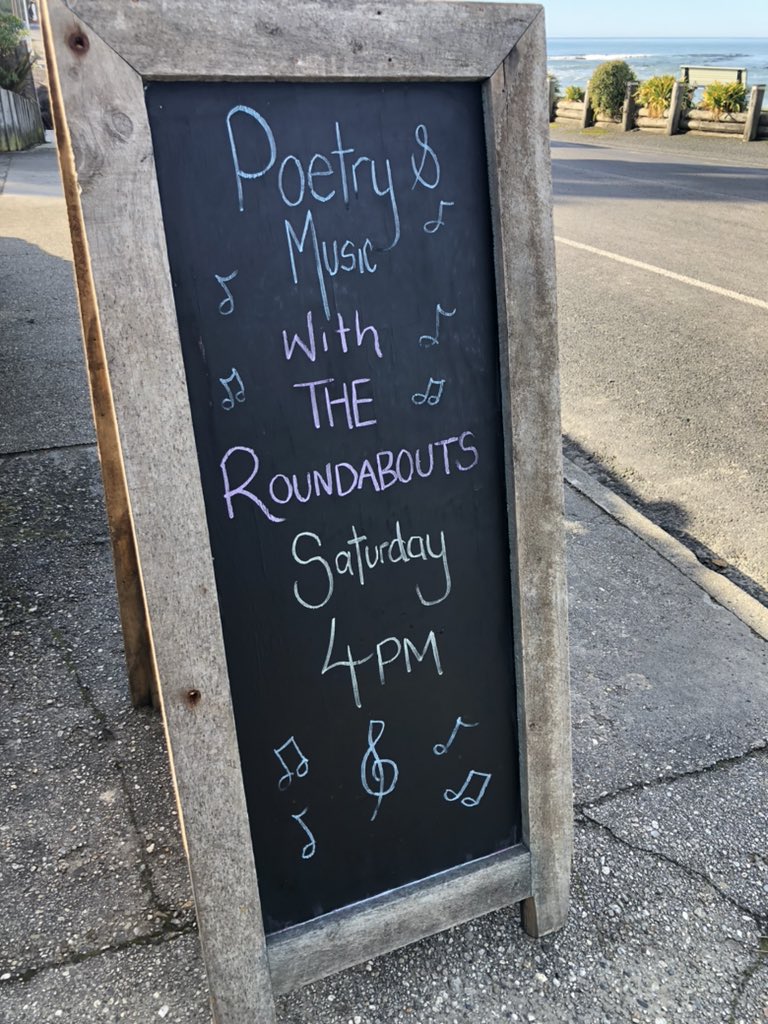 Poetry &
Music
With
THE
ROUNDABOUTS
Saturday
4PM